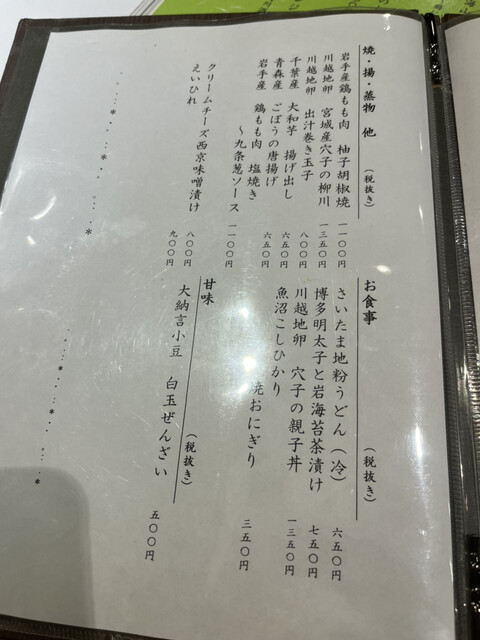 焼・揚・蒸物　他　（税抜き）
岩手産鶏もも肉　柚子胡椒焼　一一〇〇円
川越地卵　宮城産穴子の柳川　一三五〇円
川越地卵　出汁巻き玉子　八〇〇円
千葉産　大和芋　揚げ出し　六五〇円
青森産　ごぼうの唐揚げ　六五〇円
岩手産　鶏もも肉　塩焼き
～九条葱ソース　一一〇〇円
クリームチーズ西京味噌漬け　八〇〇円
えいひれ　九〇〇円
お食事　（税抜き）
さいたま地粉うどん（冷）　六五〇円
博多明太子と岩海苔茶漬け　七五〇円
川越地卵　穴子の親子丼　一三五〇円
魚沼こしひかり
焼おにぎり　三五〇円
甘味　（税抜き）
大納言小豆　白玉ぜんざい　五〇〇円